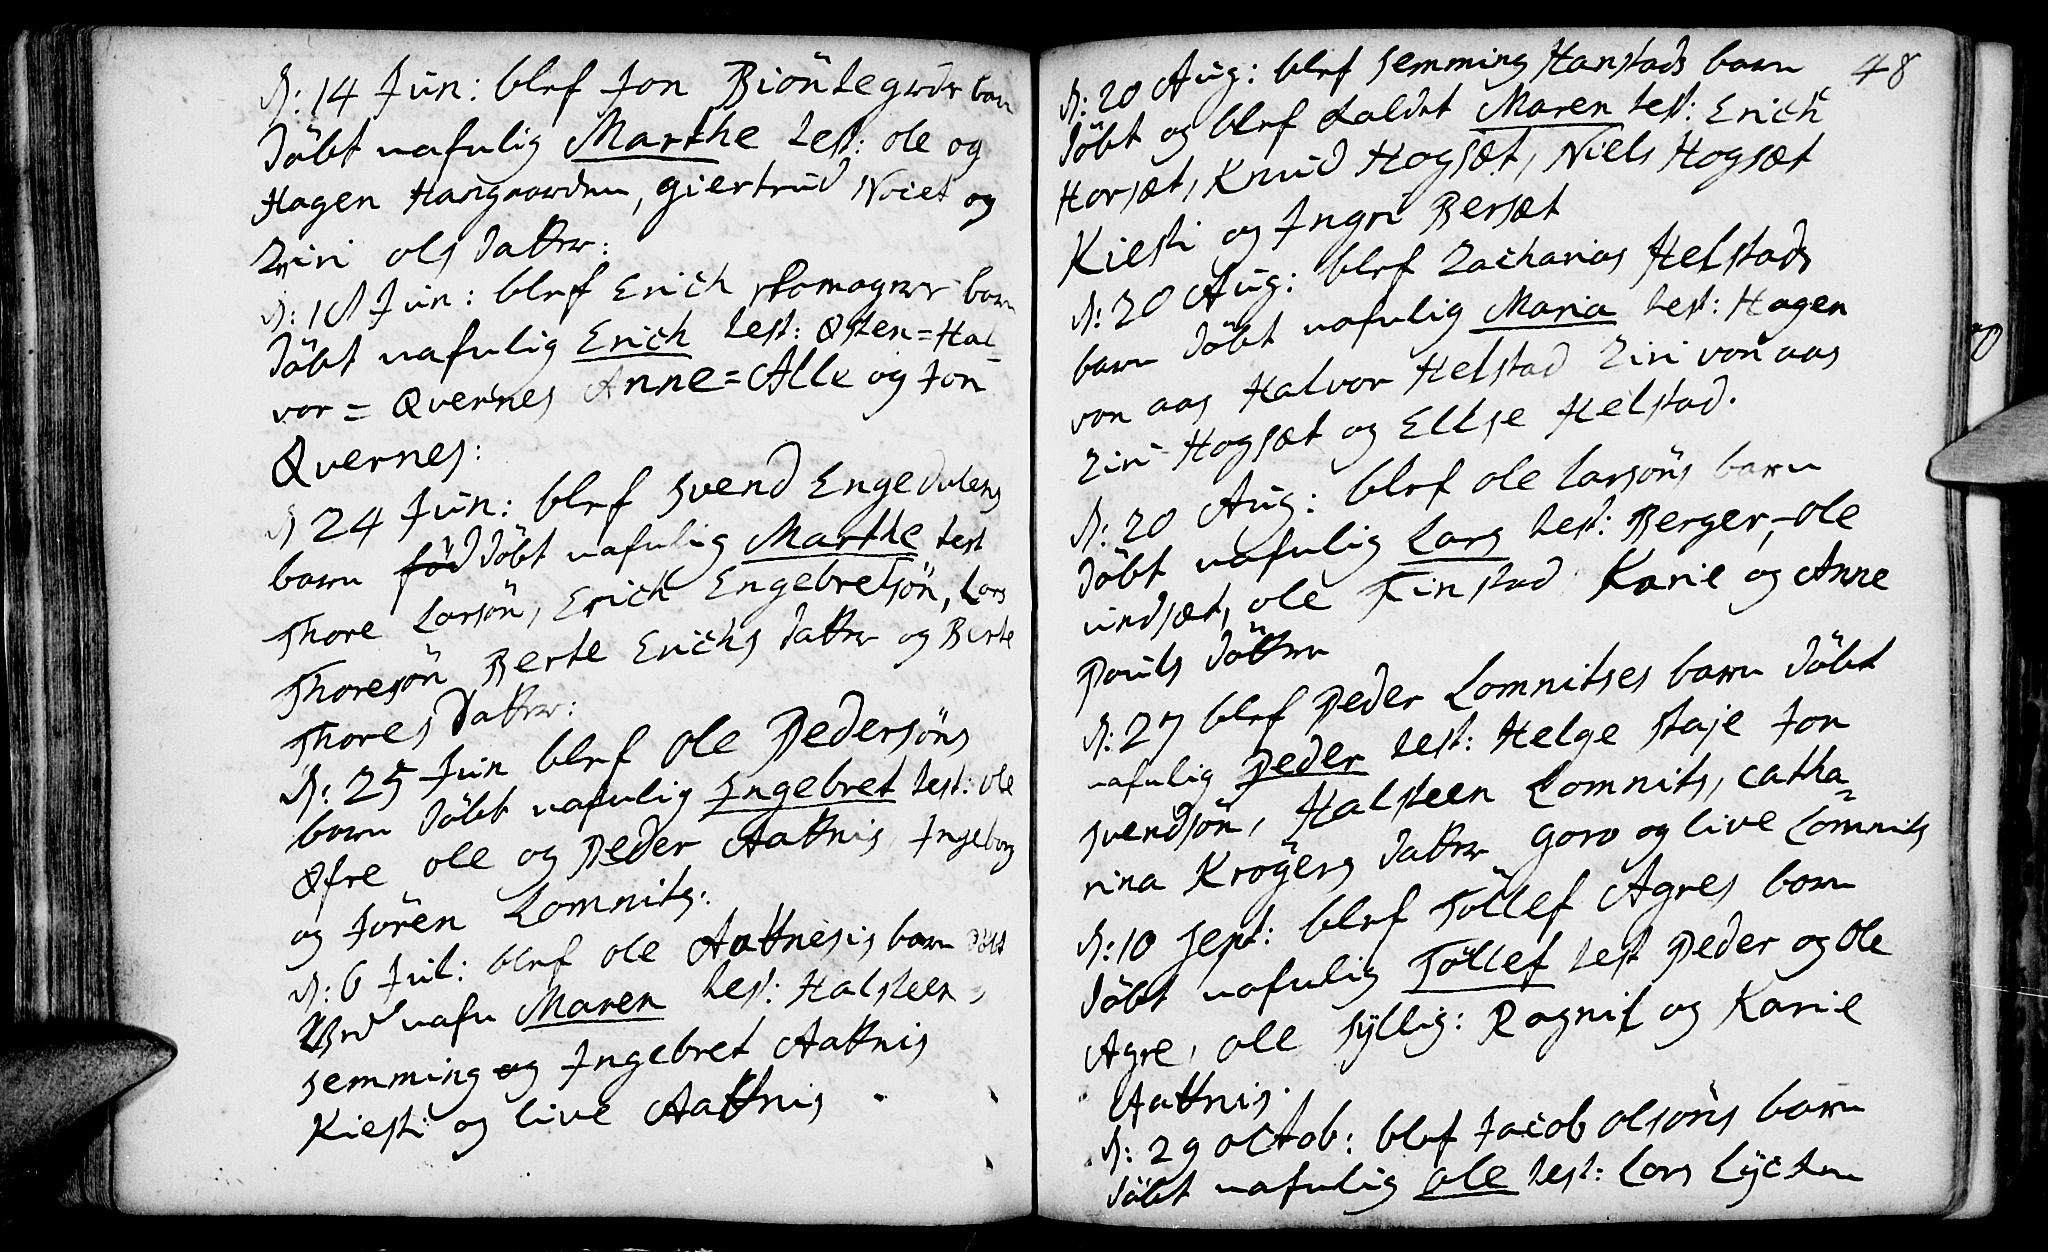 D: 14 Jun: blef Jon Biöntegrdr barn
döbt nafnlig Marthe test: ole og
Hagen Haugaarden, giertrud Noiet og
Ziri ols datter:
D: 18 Jun: blef Erich skomagers barn
döbt nafnlig Erich test: Østen = Hal-
vor = Qvernes Anne = Alle og Jon
Qvernes:
D 24 Jun: blef Svend Engedalens
barn föd döbt nafnlig Marthe test
Thore Larsön, Erich Engebretsön, Lars
Thoresön Berte Erichs datter og Birte
Thores datter:
D: 25 Jun blef Ole Pedersöns
barn döbt nafnlig Engebret test: Ole
Øfre ole og Peder Aattnis, Ingeborg
og Jören Lomnits:
D: 6 Jul: blef ole Aattnesis barn döbt
ved nafn Maren test: Halsteen,
Semming og Ingebret Aattnis
Kiesti og live Aattnis
48
D: 20 Aug: blef Semming Hanstads barn
döbt og blef kaldet Maren test: Erich
Horsæt, Knud Hogsæt, Niels Hogsæt
Kiesti og Ingri Bersæt
D: 20 Aug: blef Zacharias Helstads
barn döbt nafnlig Maria test: Hagen
von aas Halvor Helstad Ziri von aas
Ziri Hogsæt og Ellse Helstad.
D: 20 Aug: blef ole Larsöns barn
döbt nafnlig Lars test: Berger, ole
undsæt, ole Finstad Karie og Anne
Pouls döttre
D: 27 blef Peder Lomnitses barn döbt
nafnlig Peder test: Helge Staje Jon
Svendsön, Halsteen Lomnits, Catha-
rina Krögers datter Goro og live Lomnits
D: 10 Sept: blef Töllef Agres barn
döbt nafnlig Töllef test Peder og Ole
Agre, ole Syllig: Ragnil og Karie
Aattnis.
D: 29 Octob: blef Jacob olsöns barn
döbt nafnlig ole test: Lars Lycken